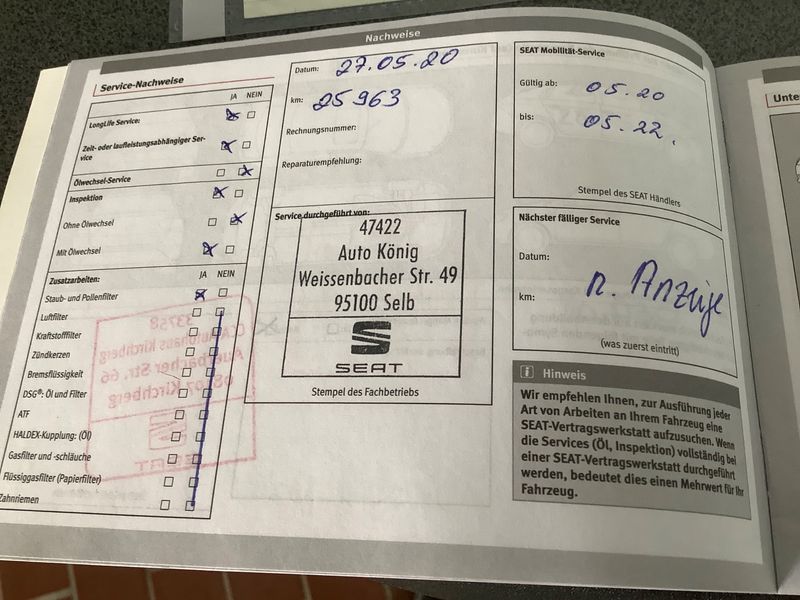 Nachweise
Service-Nachweise
JA NEIN
LongLife Service:
Zeit- oder laufleistungsabhängiger Ser-
vice
Ölwechsel-Service
Inspektion
Ohne Ölwechsel
Mit Ölwechsel
Zusatzarbeiten: JA NEIN
Staub- und Pollenfilter
Luftfilter
Kraftstofffilter
Zündkerzen
Bremsflüssigkeit
DSG®: Öl und Filter
ATF
HALDEX-Kupplung: (Öl)
Gasfilter und -schläuche
Flüssiggasfilter (Papierfilter)
Zahnriemen
Datum: 27.05.20
km: 25963
Rechnungsnummer:
Reparaturempfehlung:
Service durchgeführt von:
47422
Auto König
Weissenbacher Str. 49
95100 Selb
SEAT
Stempel des Fachbetriebs
SEAT Mobilität-Service
Gültig ab: 05.20
bis: 05.22.
Stempel des SEAT Händlers
Nächster fälliger Service
Datum:
km: n. Anzeige
(was zuerst eintritt)
i Hinweis
Wir empfehlen Ihnen, zur Ausführung jeder
Art von Arbeiten an Ihrem Fahrzeug eine
SEAT-Vertragswerkstatt aufzusuchen. Wenn
die Services (Öl, Inspektion) vollständig bei
einer SEAT-Vertragswerkstatt durchgeführt
werden, bedeutet dies einen Mehrwert für Ihr
Fahrzeug.
Unte